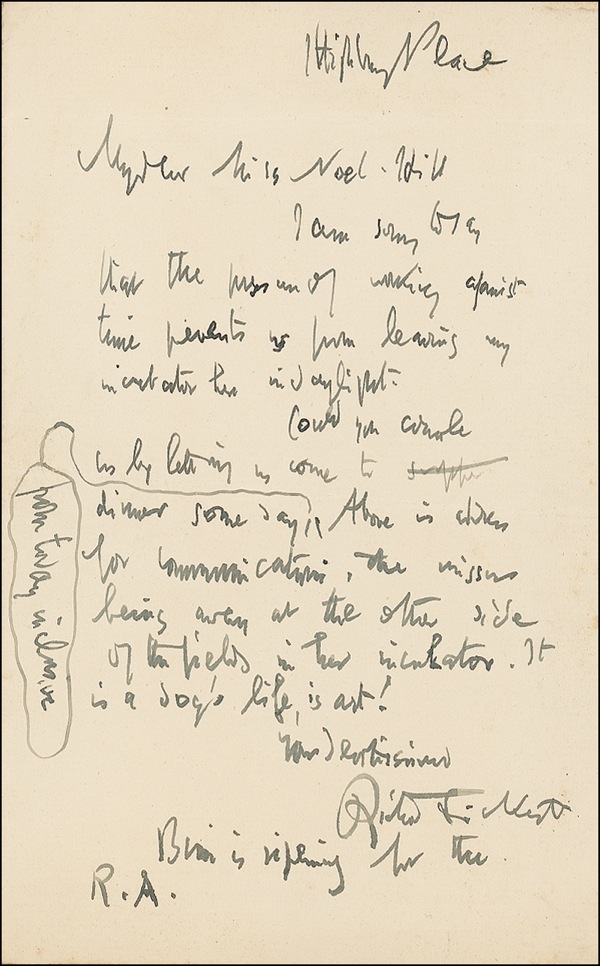 Highbury Place
My dear Miss Noel-Hill
I am sorry to say
that the pressure of working against
time prevents us from leaving my
incubator here in daylight.
Could you console
us by letting us come to supper
dinner some day, Above is address
for communications, the missus
being away at the other side
of the fields in her incubator. It
is a dog's life, is art!
from today inclusive
Yours
Richard Sickert
is ripening for the
R.A.